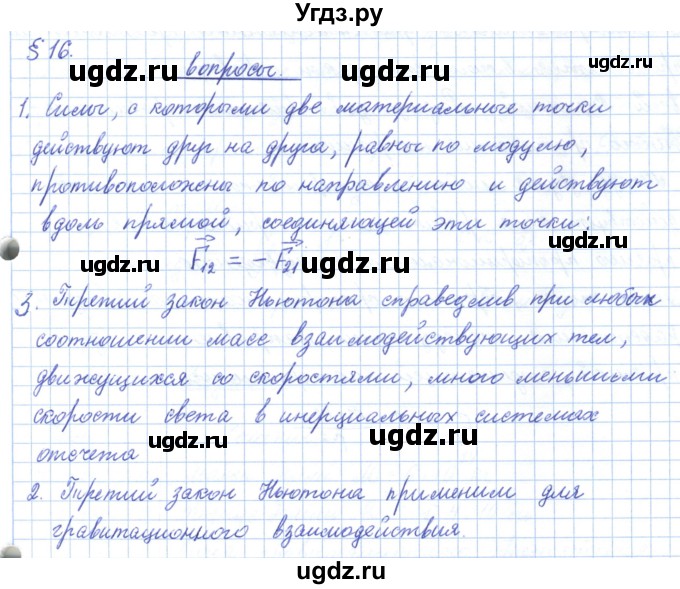 Угдз.ру
§ 16.
вопросы.
ugdz.ru ugdz.ru ugdz.ru
1. Силы, с которыми две материальные точки
действуют друг на друга, равны по модулю,
противоположены по направлению и действуют
вдоль прямой, соединяющей эти точки:
ugdz.ru
F₁₂ = - F₂₁
ugdz.ru ugdz.ru
3. Третий закон Ньютона справедлив при любых
соотношении масс взаимодействующих тел,
движущихся со скоростями, много меньшими
скорости света в инерциальных системах
ugdz.ru ugdz.ru
отсчета
2. Третий закон Ньютона применим для
гравитационного взаимодействия.
ugdz.ru